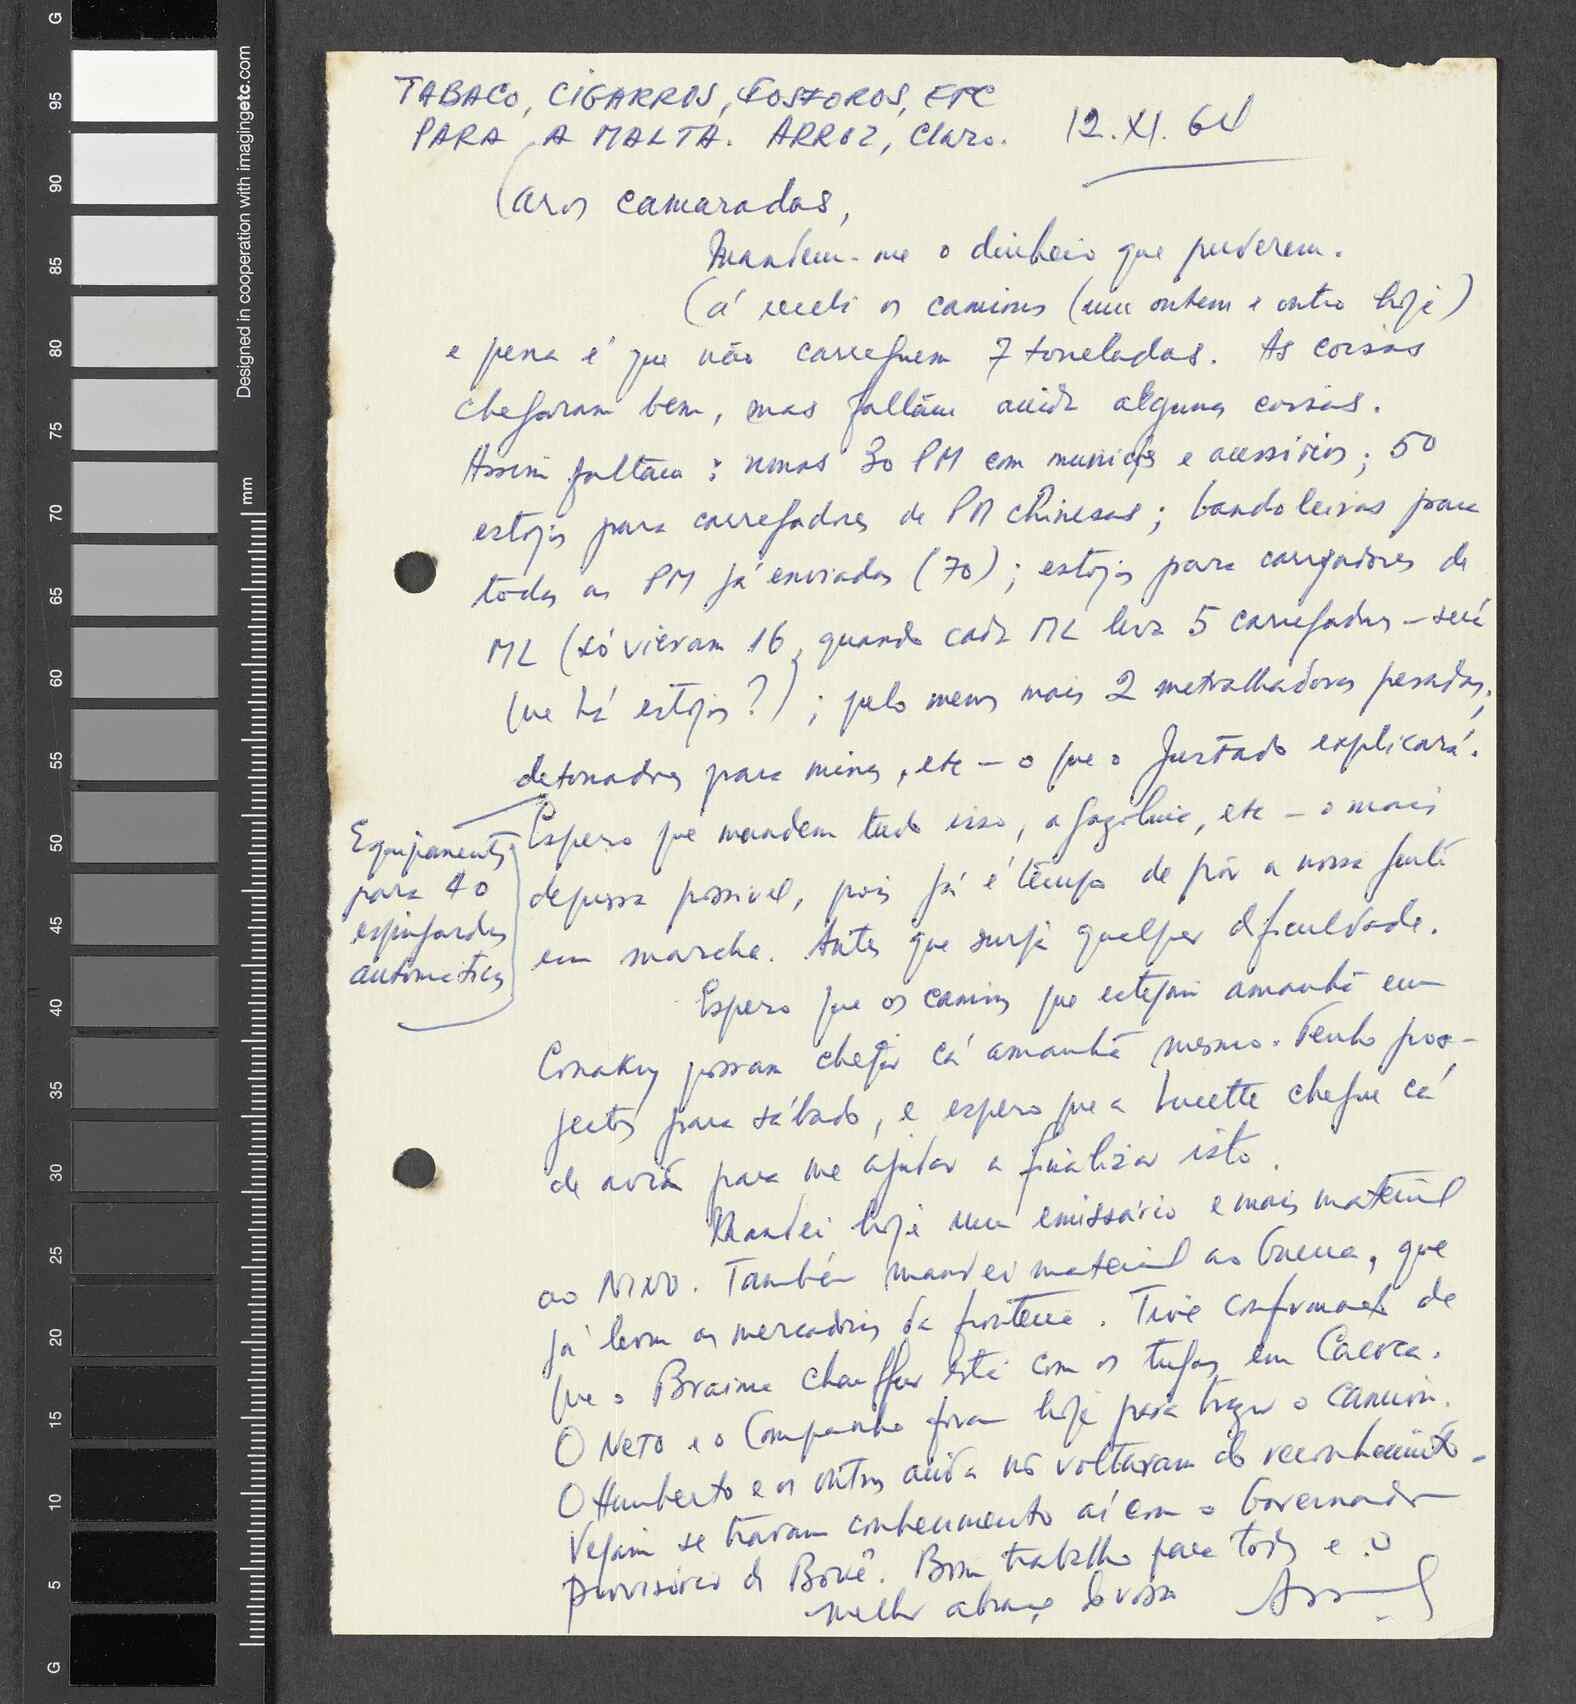 TABACO, CIGARROS, FOSFOROS, ETC
PARA A MALTA. ARROZ, claro.
12.XI.64
Caros camaradas,
Mandem-me o dinheiro que puderem.
Cá recebi os camions (um ontem e outro hoje)
e pena é que não carreguem 7 toneladas. As coisas
chegaram bem, mas faltam ainda algumas coisas.
Assim faltam: umas 30 PM com munições e acessórios; 50
estojos para carregadores de PM chinesas; bandoleiras para
todas as PM já enviadas (70); estojos para carregadores de
ML (só vieram 16, quando cada ML leva 5 carregadores - será
que há estojos?); pelo menos mais 2 metralhadoras pesadas;
detonadores para minas, etc - o que o Furtado explicará.
Equipamentos
para 40
espingardas
automáticas
Espero que mandem tudo isso, a gazolina, etc - o mais
depressa possivel, pois já é tempo de pôr a nossa gente
em marcha. Antes que surja qualquer dificuldade.
Espero que os camions que estejam amanhã em
Conakry possam chegar cá amanhã mesmo. Tenho pro-
jectos para sábado, e espero que a Lucette chegue cá
de avião para me ajudar a finalizar isto.
Mandei hoje um emissário e mais material
ao NINO. Também mandei material ao Guerra, que
já levou as mercadorias da fronteira. Tive confirmação de
que o Braima chauffeur está com os tugas em Cacoca.
O NETO e o Companhe foram hoje para trazer o camion.
O Humberto e os outros ainda não voltaram do reconhecimento.
Vejam se travam conhecimento aí com o Governador
provisório de Boké. Bom trabalho para todos e o
melhor abraço do vosso